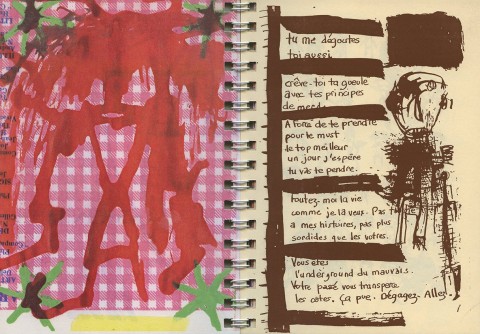 tu me dégoutes
toi aussi.
crêve-toi ta gueule
avec tes principes
de merde.
A force de te prendre
pour le must
le top meilleur
un jour j'espère
tu vas te pendre.
Foutez-moi la vie
comme je la veus. Pas
a mes histoires, pas plus
sordides que les votres.
Vous etes
l'underground du mauvais.
Votre passé vous transpere
les cotes. Ça pue. Dégagez. Aller